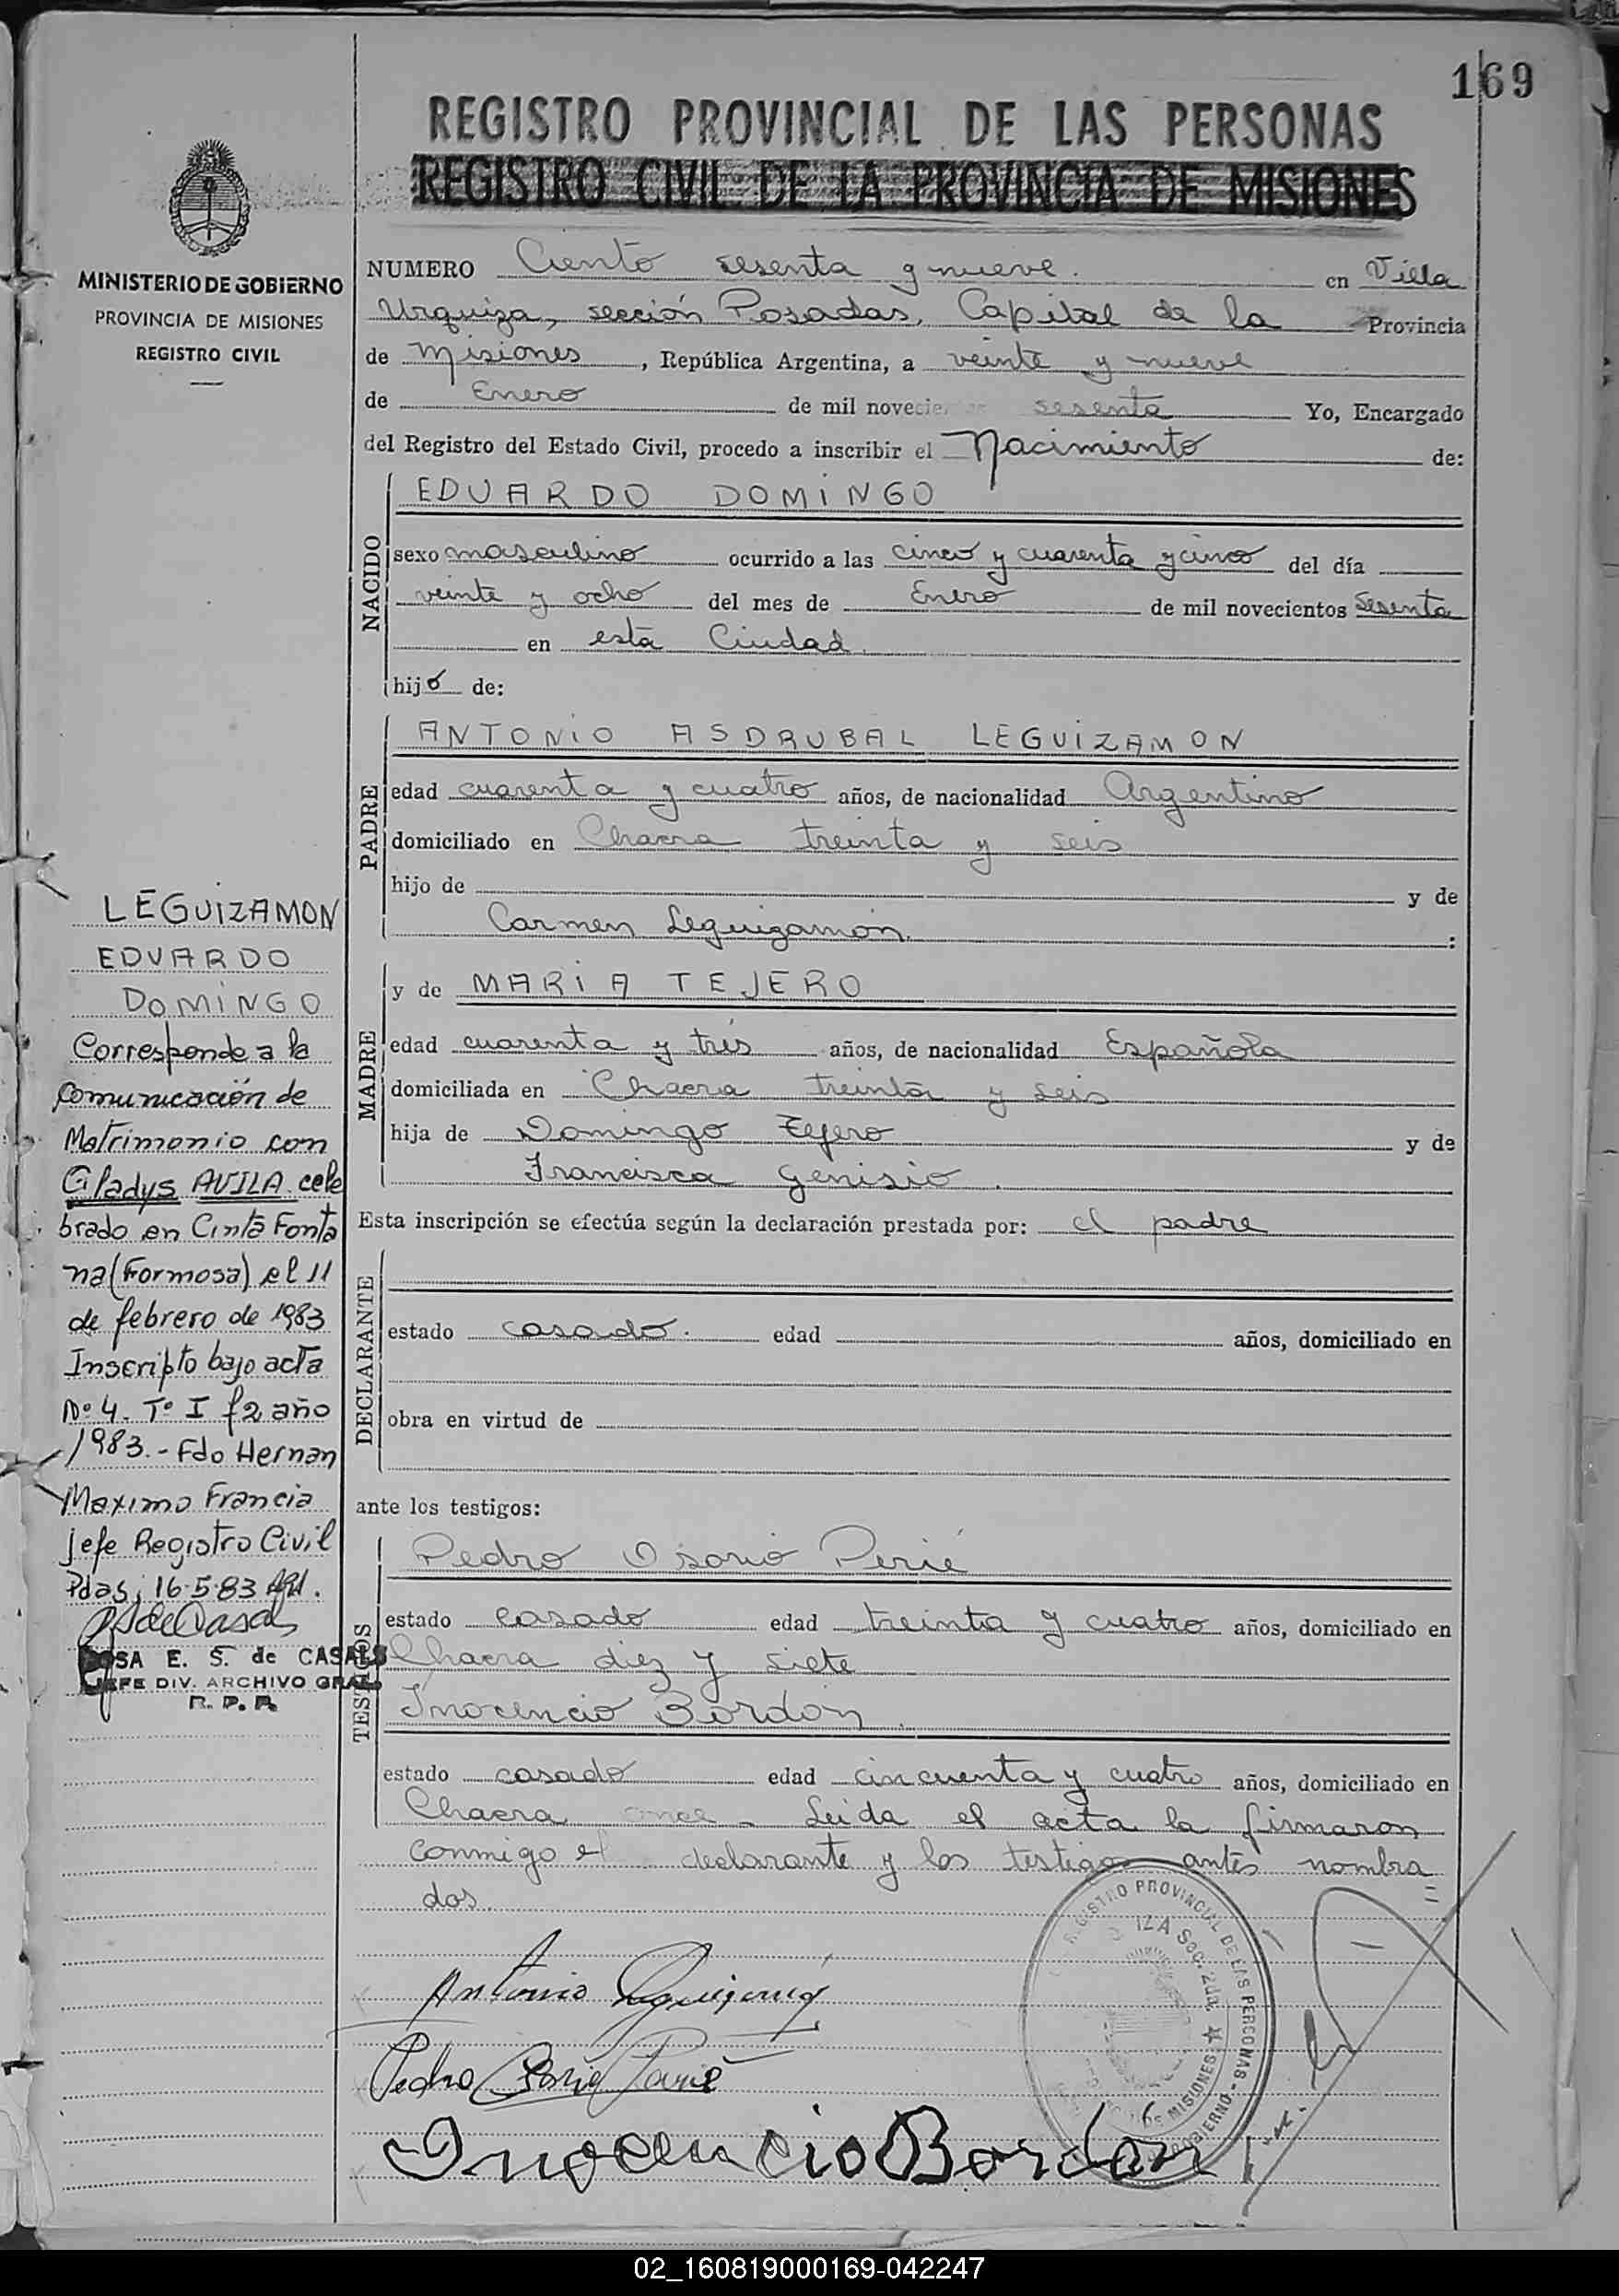 169
REGISTRO PROVINCIAL DE LAS PERSONAS
REGISTRO CIVIL DE LA PROVINCIA DE MISIONES
MINISTERIO DE GOBIERNO
PROVINCIA DE MISIONES
REGISTRO CIVIL
NUMERO Ciento sesenta y nueve. en Villa
Urquiza, sección Posadas, Capital de la Provincia
de Misiones, República Argentina, a veinte y nueve
de Enero de mil novecie sesenta Yo, Encargado
del Registro del Estado Civil, procedo a inscribir el Nacimiento de:
NACIDO
EDUARDO DOMINGO
sexo masculino ocurrido a las cinco y cuarenta y cinco del día
veinte y ocho del mes de Enero de mil novecientos sesenta
en esta Ciudad.
hijo de:
PADRE
ANTONIO ASDRUBAL LEGUIZAMON
edad cuarenta y cuatro años, de nacionalidad Argentino
domiciliado en Chacra treinta y seis
hijo de y de
Carmen Leguizamón. :
MADRE
y de MARIA TEJERO
edad cuarenta y tres años, de nacionalidad Española
domiciliada en Chacra treinta y seis
hija de Domingo Tejero y de
Francisca Genisio.
Esta inscripción se efectúa según la declaración prestada por: el padre
DECLARANTE
estado casado. edad años, domiciliado en
obra en virtud de
ante los testigos:
TESTIGOS
Pedro Osorio Perié
estado casado edad treinta y cuatro años, domiciliado en
Chacra diez y siete
Inocencio Bordón.
estado casado edad cincuenta y cuatro años, domiciliado en
Chacra once. Leida el acta la firmaron
conmigo el declarante y los testigos antes nombra
dos.
Antonio Leguizamón
Pedro Osorio Perié
Inocencio Bordon
REGISTRO PROVINCIAL DE LAS PERSONAS
MISIONES
LEGUIZAMON
EDUARDO
DOMINGO
Corresponde a la
comunicación de
Matrimonio con
Gladys AVILA cele
brado en Cinta Fonta
na (Formosa) el 11
de febrero de 1983
Inscripto bajo acta
Nº 4. Tº I f 2 año
1983.- Fdo Hernan
Maximo Francia
Jefe Registro Civil
Pdas; 16.5.83
ROSA E. S. de CASALS
JEFE DIV. ARCHIVO GRAL.
R. P. P.
02_160819000169-042247